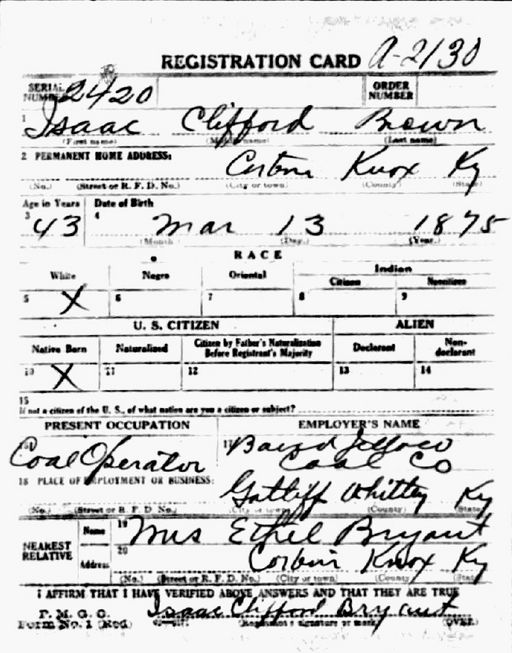 REGISTRATION CARD A-2130
SERIAL NUMBER 2420 ORDER NUMBER
1 Isaac Clifford Brown
(First name) (Middle name) (Last name)
2 PERMANENT HOME ADDRESS:
Corbin Knox Ky
(No.) (Street or R. F. D. No.) (City or town) (County) (State)
Age in Years Date of Birth
3 43 4 Mar 13 1875
(Month) (Day.) (Year.)
RACE
White Negro Oriental Indian
Citizen Noncitizen
5 X 6 7 8 9
U. S. CITIZEN ALIEN
Native Born Naturalized Citizen by Father's Naturalization Before Registrant's Majority Declarant Non-declarant
10 X 11 12 13 14
15
If not a citizen of the U. S., of what nation are you a citizen or subject?
PRESENT OCCUPATION EMPLOYER'S NAME
16 Coal Operator 17 Coal Co
18 PLACE OF EMPLOYMENT OR BUSINESS:
Gatliff Whitley Ky
(No.) (Street or R. F. D. No.) (City or town) (County) (State)
NEAREST RELATIVE
Name 19 Mrs Ethel Bryant
Address 20 Corbin Knox Ky
(No.) (Street or R. F. D. No.) (City or town) (County) (State)
I AFFIRM THAT I HAVE VERIFIED ABOVE ANSWERS AND THAT THEY ARE TRUE
P. M. G. O. Isaac Clifford Bryant
Form No. 1 (Red) (Registrant's signature or mark) (OVER)